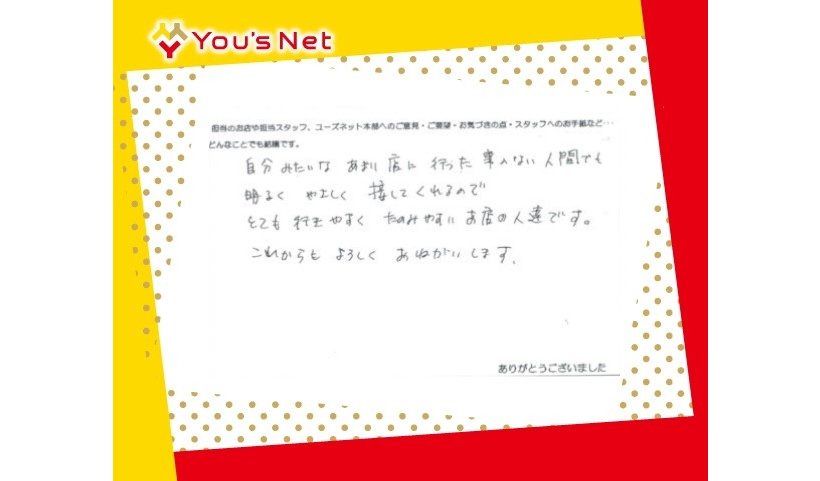 You's Net
担当のお店や担当スタッフ、ユーズネット本部へのご意見・ご要望・お気づきの点・スタッフへのお手紙など…
どんなことでも結構です。
自分みたいな あまり店に行った事のない人間でも
明るく やさしく 接してくれるので
とても 行きやすく たのみやすい お店の人達です。
これからも よろしく おねがいします。
ありがとうございました